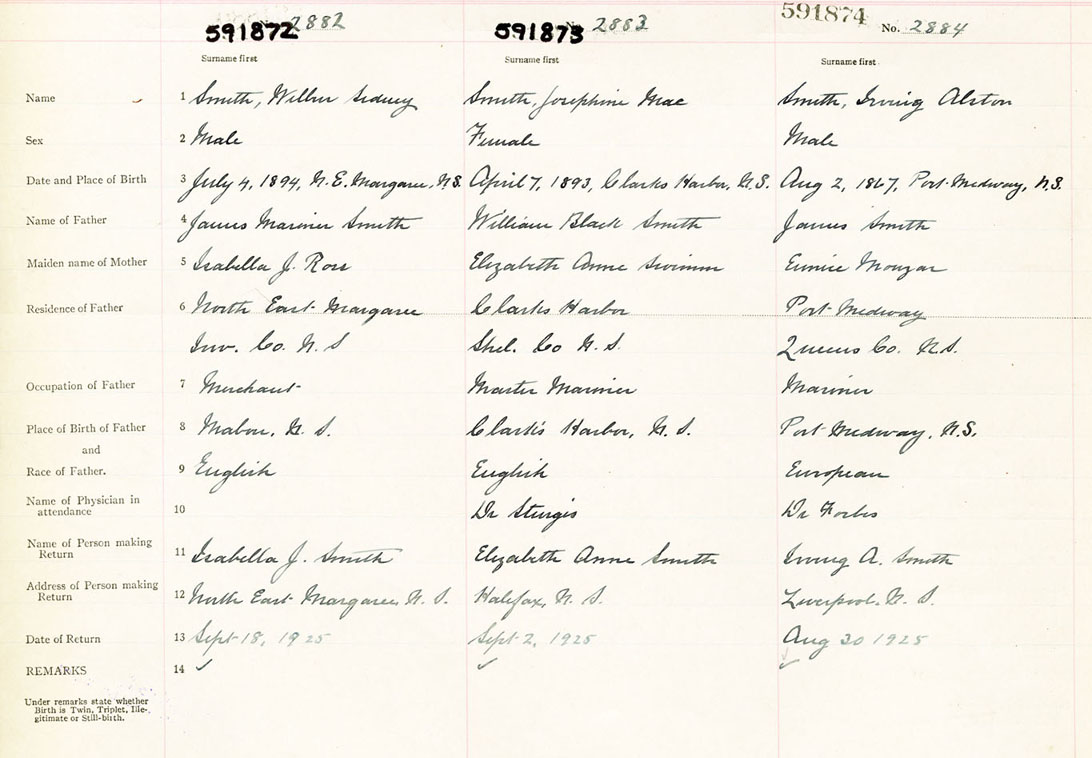 591872 2882 591873 No. 2883 591874 No. 2884
Surname first Surname first Surname first
Name 1 Smith, Wilbur Sidney Smith, Josephine Mae Smith, Irving Alston
Sex 2 Male Female Male
Date and Place of Birth 3 July 4, 1894, N.E. Margaree, N.S. April 7, 1893, Clarks Harbor, N.S. Aug 2, 1867, Port Medway, N.S.
Name of Father 4 James Mariner Smith William Black Smith James Smith
Maiden name of Mother 5 Isabella J. Ross Elizabeth Anne Swimm Eunice Mouzar
Residence of Father 6 North East Margaree Clarks Harbor Port Medway
Inv. Co. N. S Shel. Co N. S. Queens Co. N.S.
Occupation of Father 7 Merchant Master Mariner Mariner
Place of Birth of Father 8 Mabou, N. S. Clark's Harbor, N. S. Port Medway, N.S.
and
Race of Father. 9 English English European
Name of Physician in
attendance 10 Dr Sturgis Dr Forbes
Name of Person making
Return 11 Isabella J. Smith Elizabeth Anne Smith Irving A. Smith
Address of Person making
Return 12 North East Margaree, N. S. Halifax, N. S. Liverpool, N. S.
Date of Return 13 Sept 18, 1925 Sept 2, 1925 Aug 30 1925
REMARKS 14 ✓ ✓ ✓
Under remarks state whether
Birth is Twin, Triplet, Ille-
gitimate or Still-birth.